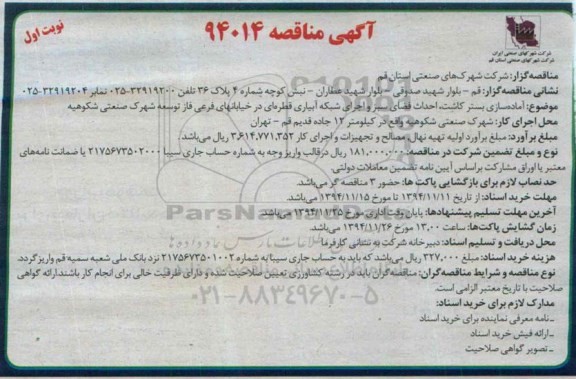 نوبت اول
آگهی مناقصه ۹۴۰۱۴
شرکت شهرکهای صنعتی ایران
شرکت شهرکهای صنعتی استان قم
مناقصه‌گزار: شرکت شهرک‌های صنعتی استان قم
نشانی مناقصه‌گزار: قم - بلوار شهید صدوقی - بلوار شهید عطاران - نبش کوچه شماره ۴ پلاک ۳۶ تلفن ۳۲۹۱۹۲۰۰-۰۲۵ نمابر ۳۲۹۱۹۲۰۴-۰۲۵
موضوع: آماده‌سازی بستر کاشت، احداث فضای سبز و اجرای شبکه آبیاری قطره‌ای در خیابانهای فرعی فاز توسعه شهرک صنعتی شکوهیه
محل اجرای کار: شهرک صنعتی شکوهیه واقع در کیلومتر ۱۲ جاده قدیم قم - تهران
مبلغ برآورد: مبلغ برآورد اولیه تهیه نهال، مصالح و تجهیزات و اجرای کار ۳,۶۱۴,۷۷۱,۳۵۲ ریال می‌باشد.
نوع و مبلغ تضمین شرکت در مناقصه: ۱۸۱,۰۰۰,۰۰۰ ریال در قالب واریز وجه به شماره حساب جاری سیبا ۲۱۷۵۶۷۳۵۰۲۰۰۰ یا ضمانت نامه‌های
معتبر یا اوراق مشارکت براساس آیین نامه تضمین معاملات دولتی.
حد نصاب لازم برای بازگشایی پاکت ها: حضور ۳ مناقصه گر می‌باشد.
مهلت خرید اسناد: از تاریخ ۱۳۹۴/۱۱/۱۱ تا مورخ ۱۳۹۴/۱۱/۱۵ می‌باشد.
آخرین مهلت تسلیم پیشنهادها: پایان وقت اداری مورخ ۱۳۹۴/۱۱/۲۵ می‌باشد.
زمان گشایش پاکت‌ها: ساعت ۱۳,۰۰ مورخ ۱۳۹۴/۱۱/۲۶ می‌باشد.
محل دریافت و تسلیم اسناد: دبیرخانه شرکت به نشانی کارفرما
هزینه خرید اسناد: مبلغ ۳۲۷,۰۰۰ ریال می‌باشد که باید به حساب جاری سیبا به شماره ۲۱۷۵۶۷۳۵۰۱۰۰۲ نزد بانک ملی شعبه سمیه قم واریز گردد.
نوع مناقصه و شرایط مناقصه‌گران: مناقصه‌گران باید در رشته کشاورزی تعیین صلاحیت شده و دارای ظرفیت خالی برای انجام کار باشند. ارائه گواهی
صلاحیت با تاریخ معتبر الزامی است.
مدارک لازم برای خرید اسناد:
ـ نامه معرفی نماینده برای خرید اسناد
ـ ارائه فیش خرید اسناد
ـ تصویر گواهی صلاحیت
۰۲۱-۸۸۳۴۹۶۷۰-۵